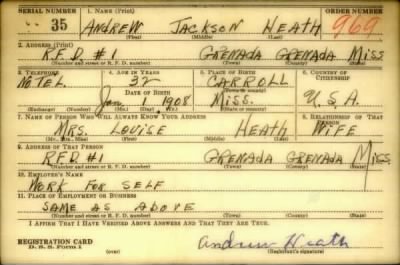 SERIAL NUMBER 1. NAME (Print) ORDER NUMBER
35 ANDREW JACKSON HEATH 969
(First) (Middle) (Last)
2. ADDRESS (Print)
R.F.D. #1 GRENADA GRENADA MISS
(Number and street or R. F. D. number) (Town) (County) (State)
3. TELEPHONE 4. AGE IN YEARS 5. PLACE OF BIRTH 6. COUNTRY OF CITIZENSHIP
NO TEL. 32 CARROLL
DATE OF BIRTH (Town or county)
Jan. 1 1908 MISS. U.S.A.
(Exchange) (Number) (Mo.) (Day) (Yr.) (State or country)
7. NAME OF PERSON WHO WILL ALWAYS KNOW YOUR ADDRESS 8. RELATIONSHIP OF THAT PERSON
MRS. LOUISE HEATH WIFE
(Mr., Mrs., Miss) (First) (Middle) (Last)
9. ADDRESS OF THAT PERSON
R.F.D. #1 GRENADA GRENADA MISS.
(Number and street or R. F. D. number) (Town) (County) (State)
10. EMPLOYER'S NAME
WORK FOR SELF
11. PLACE OF EMPLOYMENT OR BUSINESS
SAME AS ABOVE
(Number and street or R. F. D. number) (Town) (County) (State)
I AFFIRM THAT I HAVE VERIFIED ABOVE ANSWERS AND THAT THEY ARE TRUE.
REGISTRATION CARD
D. S. S. Form 1 Andrew Heath
(Registrant's signature)